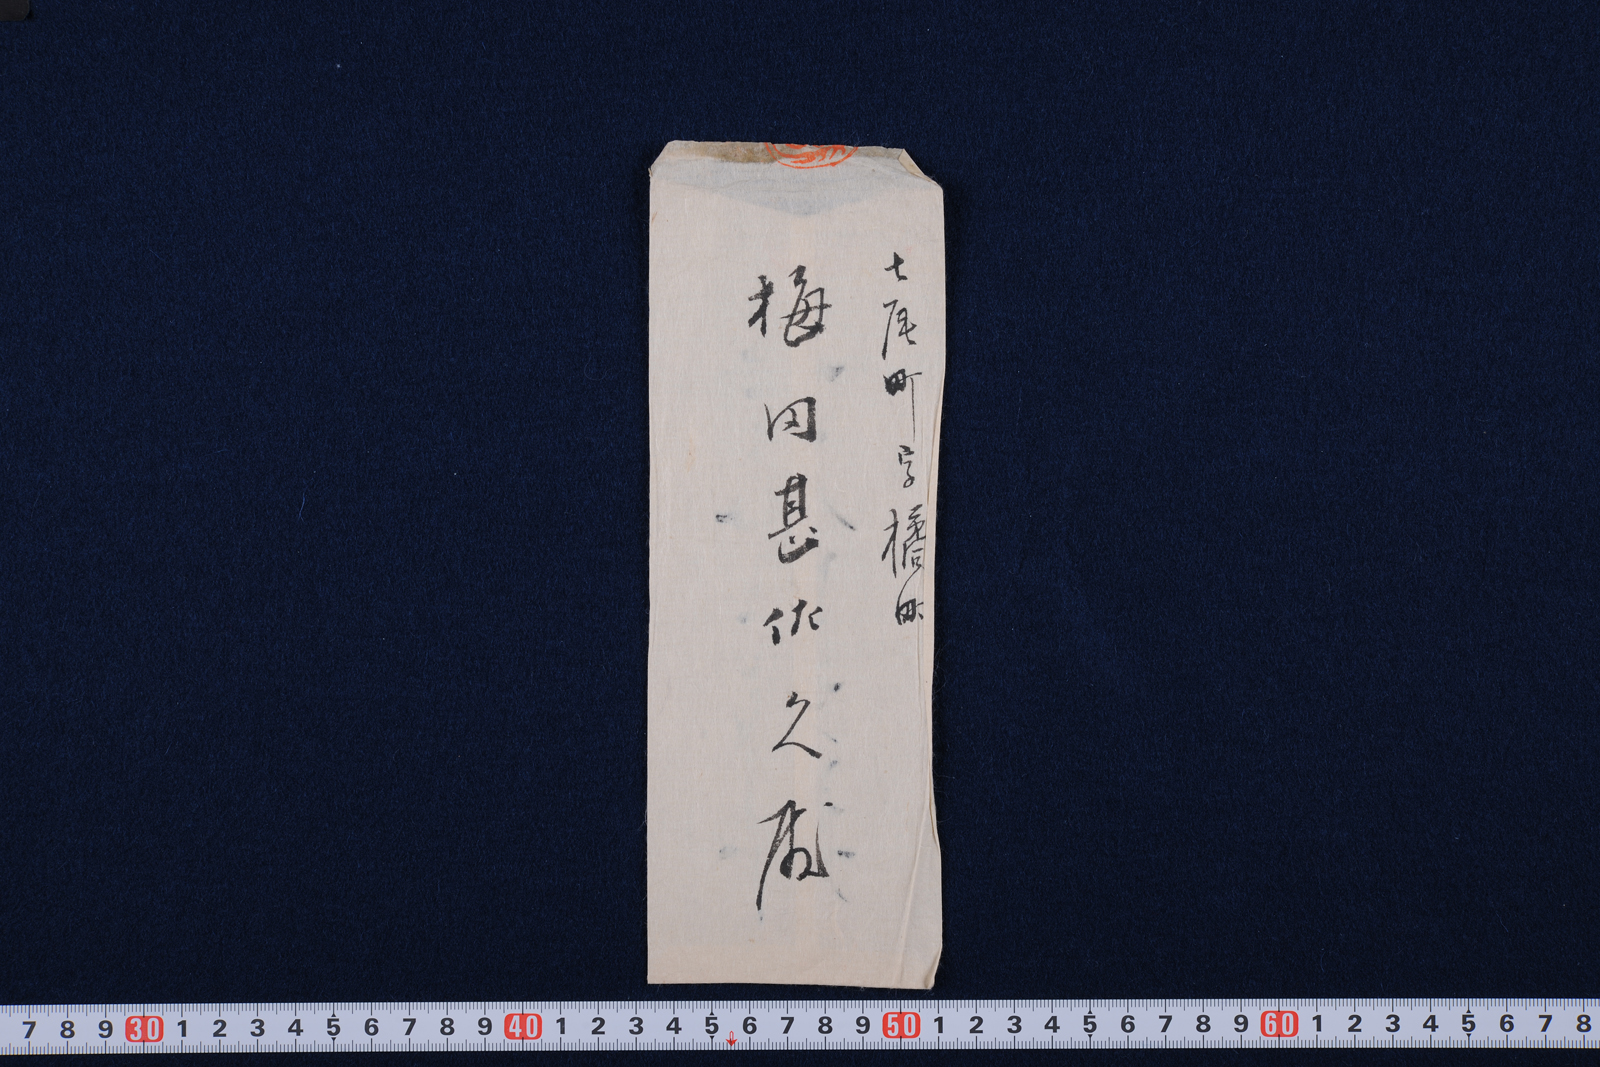 七尾町字橘町
梅田甚佐久殿
7 8 9 30 1 2 3 4 5 6 7 8 9 40 1 2 3 4 5 6 7 8 9 50 1 2 3 4 5 6 7 8 9 60 1 2 3 4 5 6 7 8